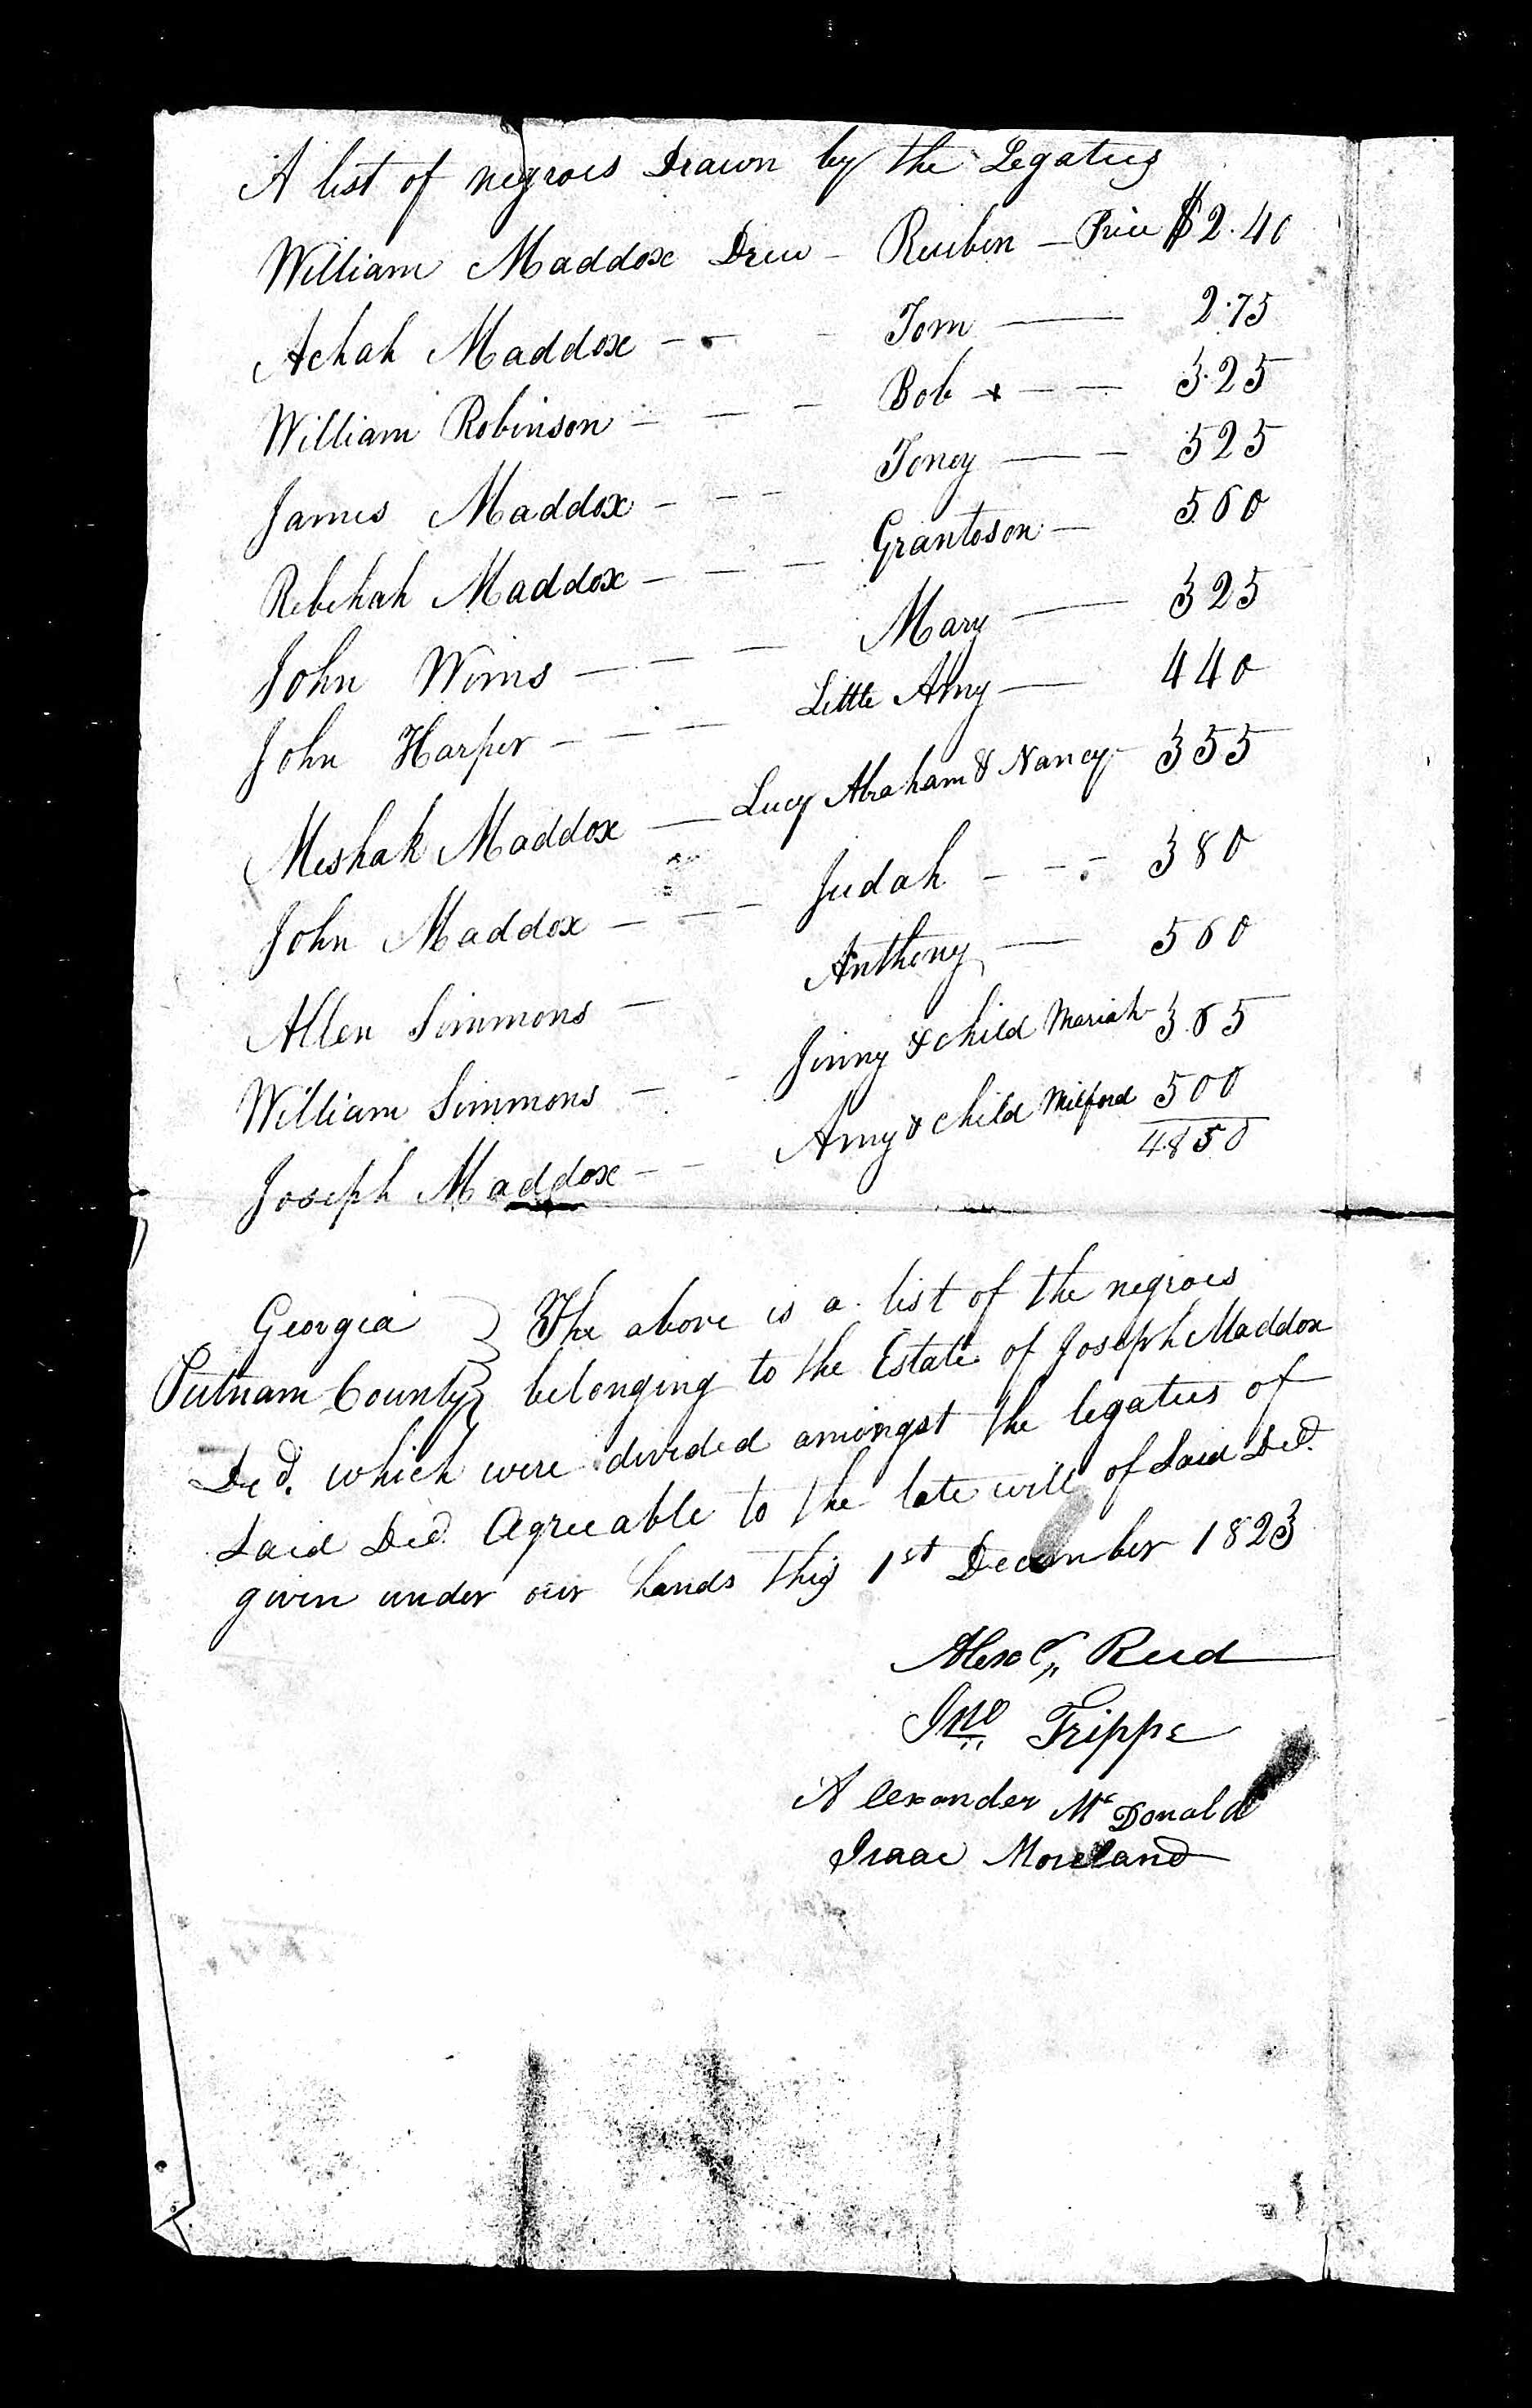 A list of negroes Drawn by the Legatees
William Maddox Drew - Reuben - Price $2.40
Achah Maddox - - - Tom - 2.75
William Robinson - - - Bob - - 3.25
James Maddox - - - Toney - - 525
Rebekah Maddox - - - Grantoson - 560
John Wims - - - Mary - 325
John Harper - - - Little Amy - 440
Meshak Maddox - Lucy Abraham & Nancy - 355
John Maddox - - - Judah - - - 380
Allen Simmons - Anthony - 560
William Simmons - - Jinny & child Mariah - 365
Joseph Maddox - - Amy & child Milford 500
4850
Georgia } The above is a list of the negroes
Putnam County } belonging to the Estate of Joseph Maddox
Decd. which were divided amongst the legatees of
Said Decd. Agreeable to the late will of Said Decd.
given under our hands this 1st December 1823
Alexr. Reid
Jno. Trippe
Alexander McDonald
Isaac Moreland